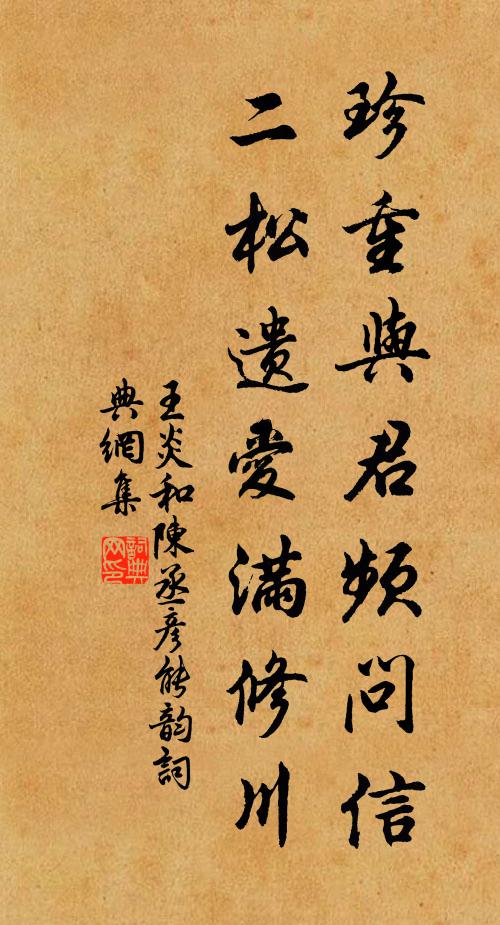 珍重與君頻問信
二松遺愛滿修川
王炎和陳丞彥能韵詞
典網集
詞典
网印